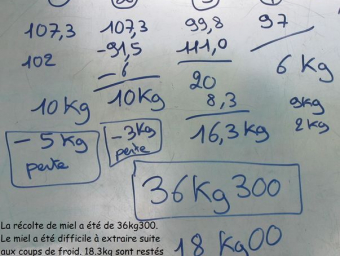 107,3 107,3 99,8 97
102 -91,5 111,0
-6 20 6 Kg
10 Kg 10 Kg 8,3 9Kg
- 5 Kg - 3 Kg 16,3 Kg 2 Kg
perte perte
36 Kg 300
18 Kg 00
La récolte de miel a été de 36kg300.
Le miel a été difficile à extraire suite
aux coups de froid. 18.3kg sont restés